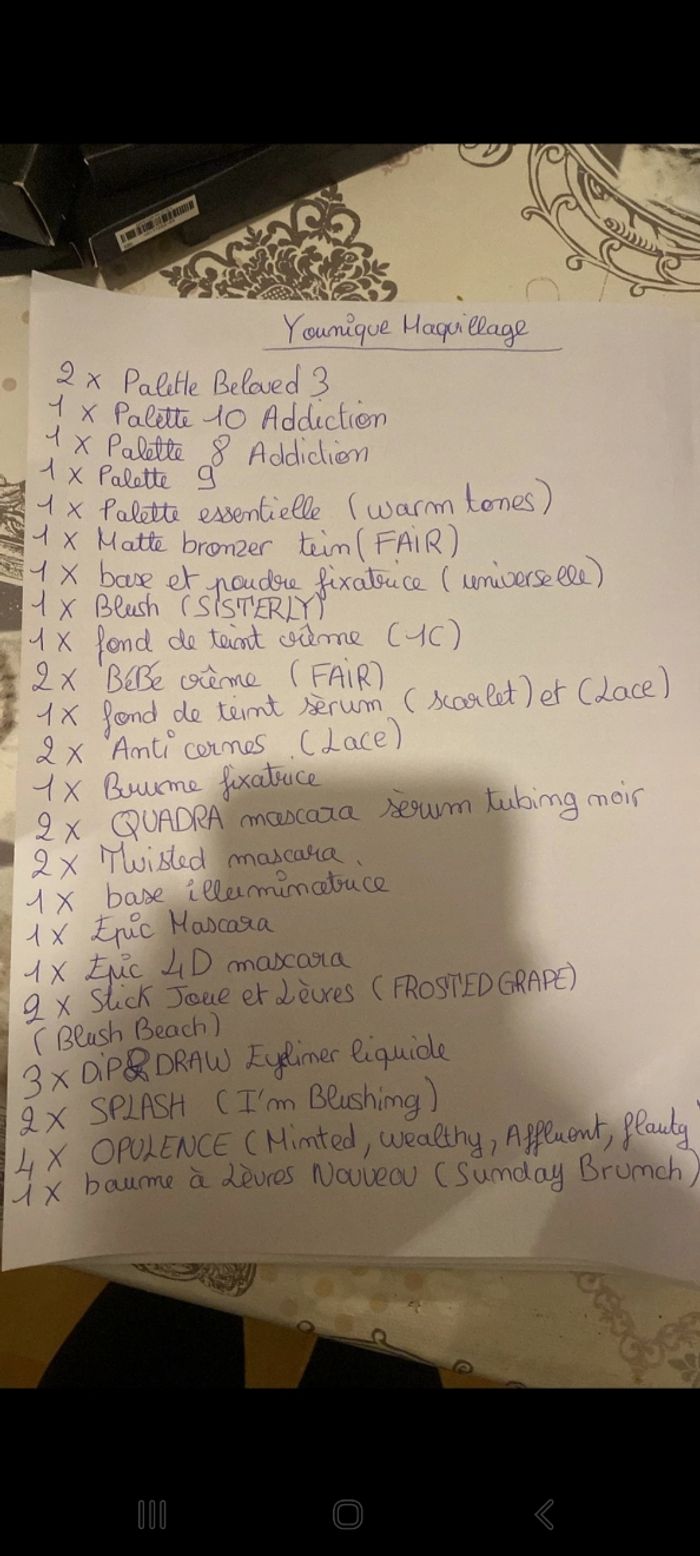 Younique Maquillage
2 x Palette Beloved 3
1 x Palette 10 Addiction
1 x Palette 8 Addiction
1 x Palette 9
1 x Palette essentielle (warm tones)
1 x Matte bronzer tein (FAIR)
1 x base et poudre fixatrice (universelle)
1 x Blush (SISTERLY)
1 x fond de teint crème (1C)
2 x BéBé crème (FAIR)
1 x fond de teint sèrum (scarlet) et (Lace)
2 x Anti cernes (Lace)
1 x Brume fixatrice
2 x QUADRA mascara sèrum tubing noir
2 x Twisted mascara.
1 x base illuminatrice
1 x Epic Mascara
1 x Epic 4D mascara
2 x Stick Joue et Lèvres (FROSTED GRAPE)
(Blush Beach)
3 x DiP & DRAW Eyeliner liquide
2 x SPLASH (I'm Blushing)
4 x OPULENCE (Minted, wealthy, Affluent, flauty
1 x baume à Lèvres Nouveau (Sunday Brunch)